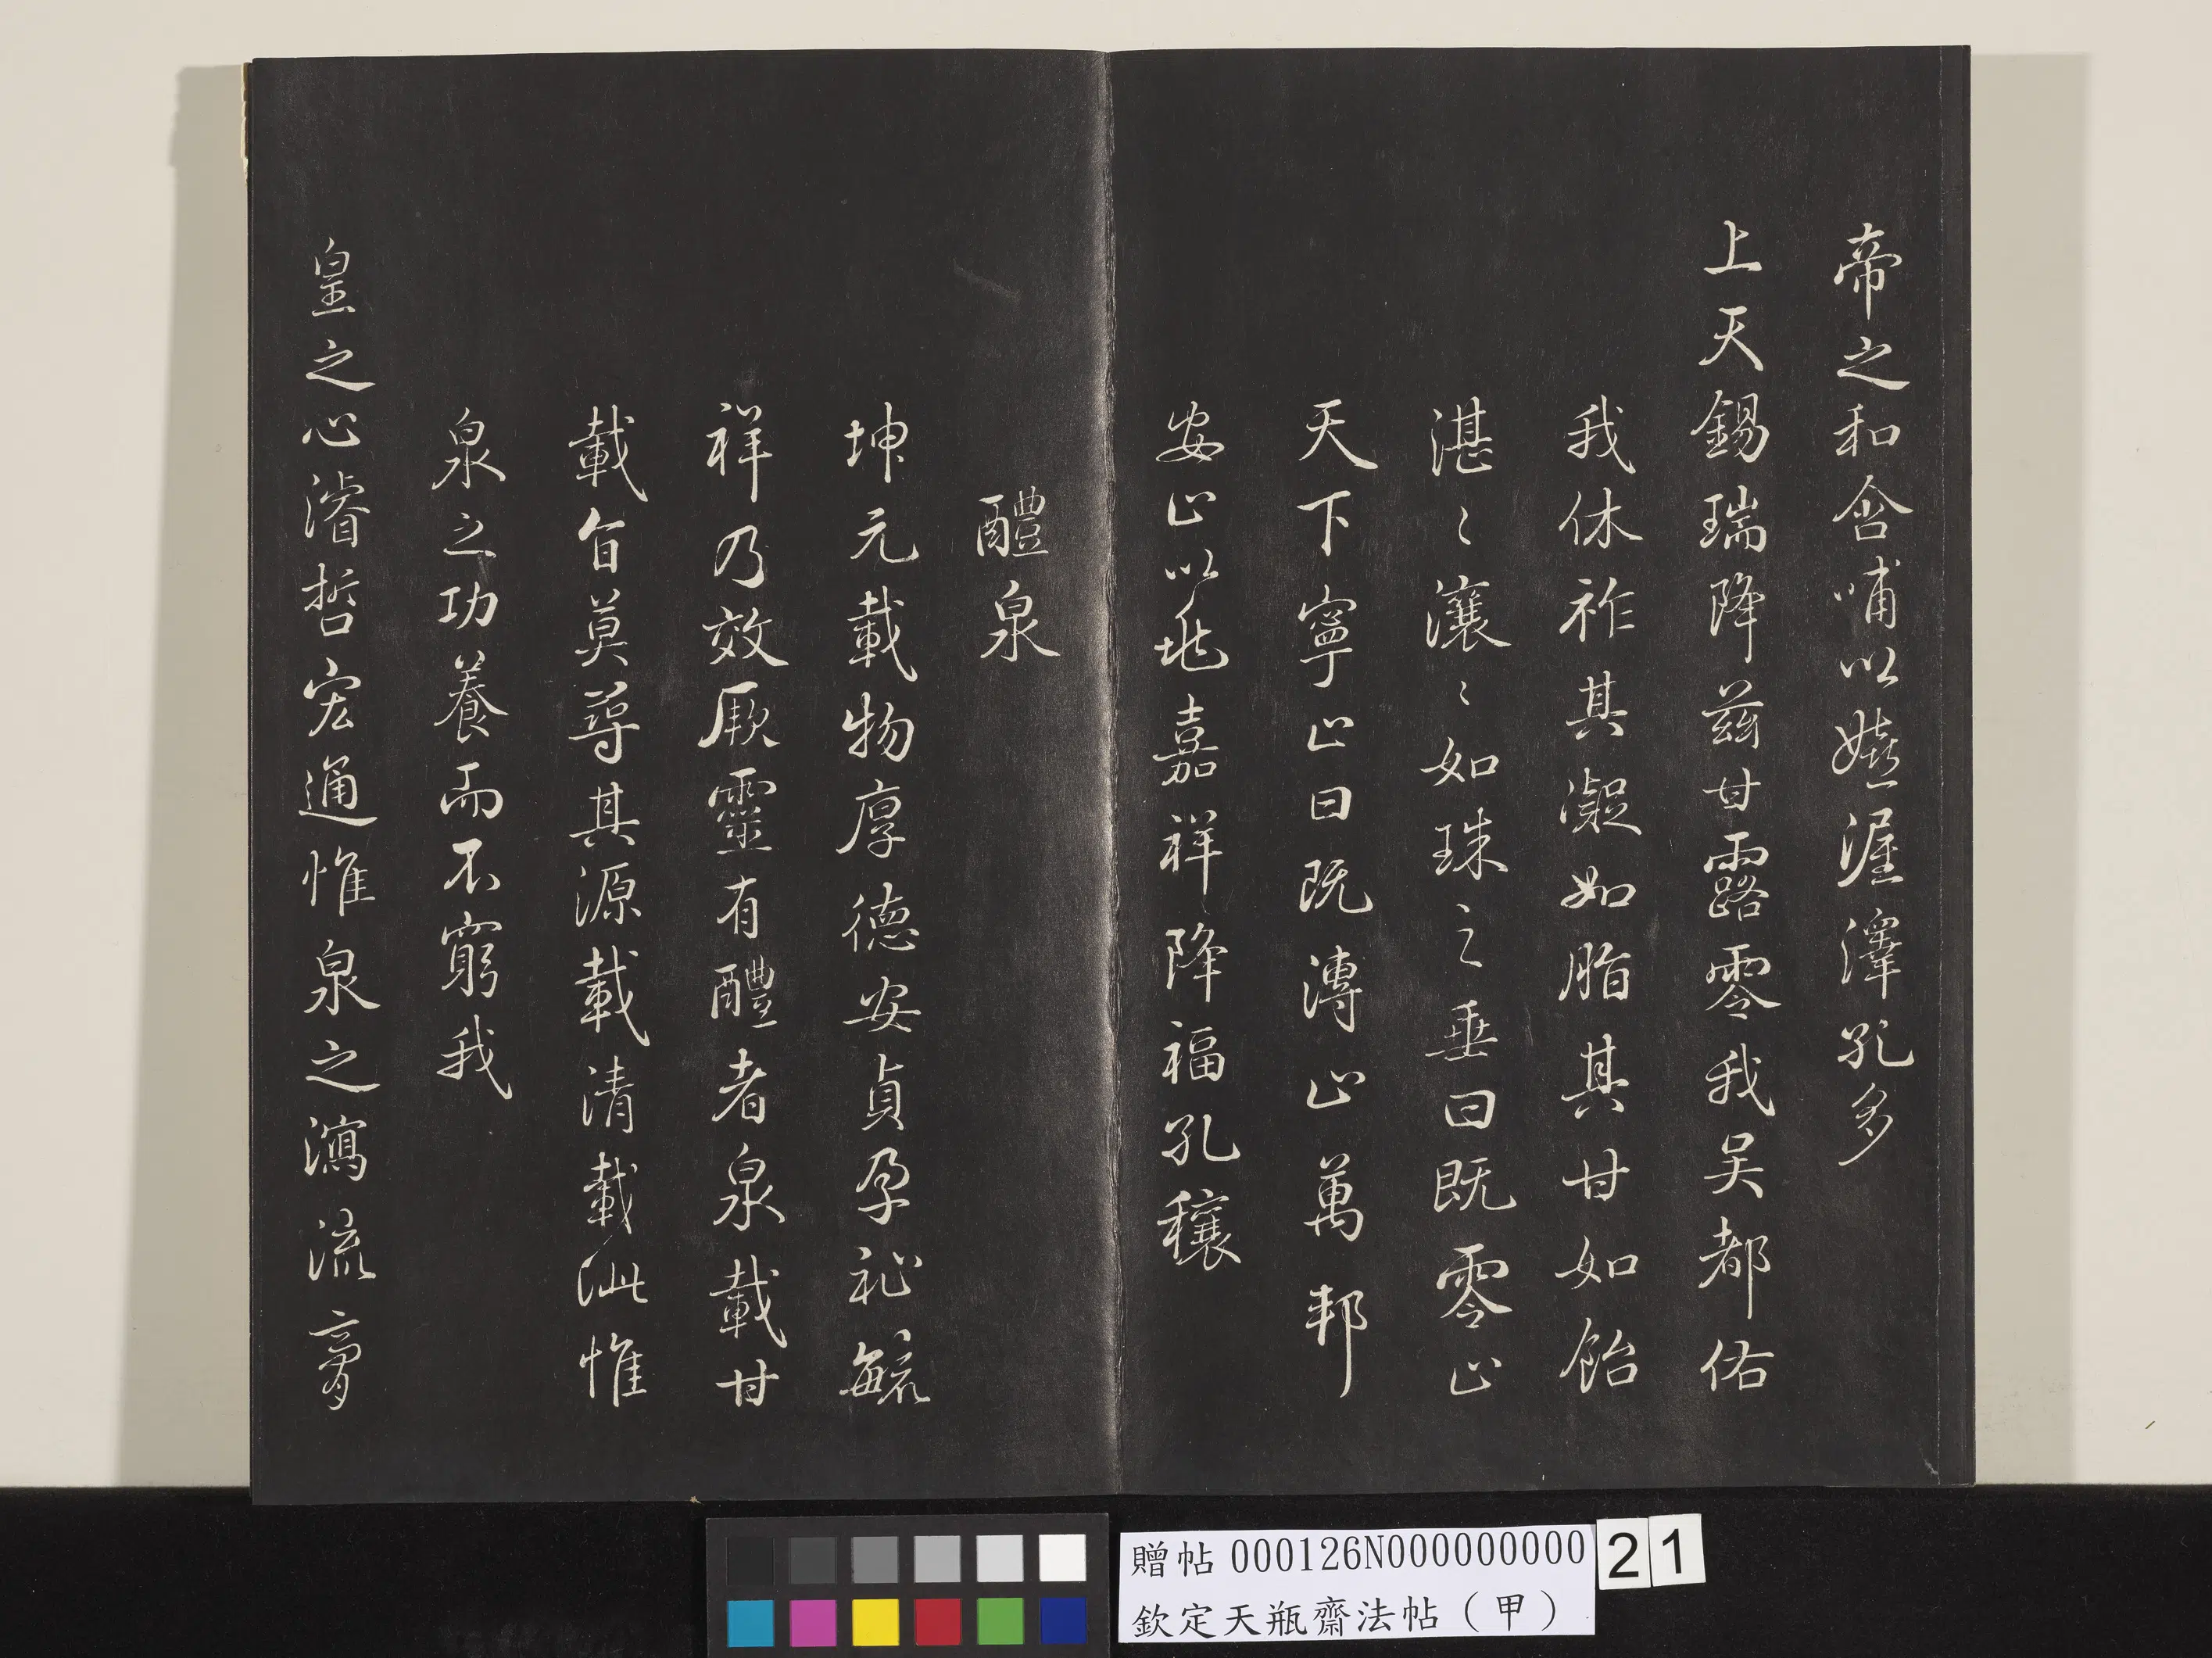 帝之和含哺以嬉渥澤孔多
上天錫瑞降茲甘露零我吴都佑
我休祚其凝如脂其甘如飴
湛〻瀼〻如珠之垂曰既零止
天下寧止曰既漙止萬邦
安止以兆嘉祥降福孔穰
醴泉
坤元載物厚德安貞孕祕毓
祥乃效厥靈有醴者泉載甘
載旨莫尋其源載清載泚惟
泉之功養而不窮我
皇之心濬哲宏通惟泉之瀉流膏
贈帖 000126N000000000 21
欽定天瓶齋法帖（甲）